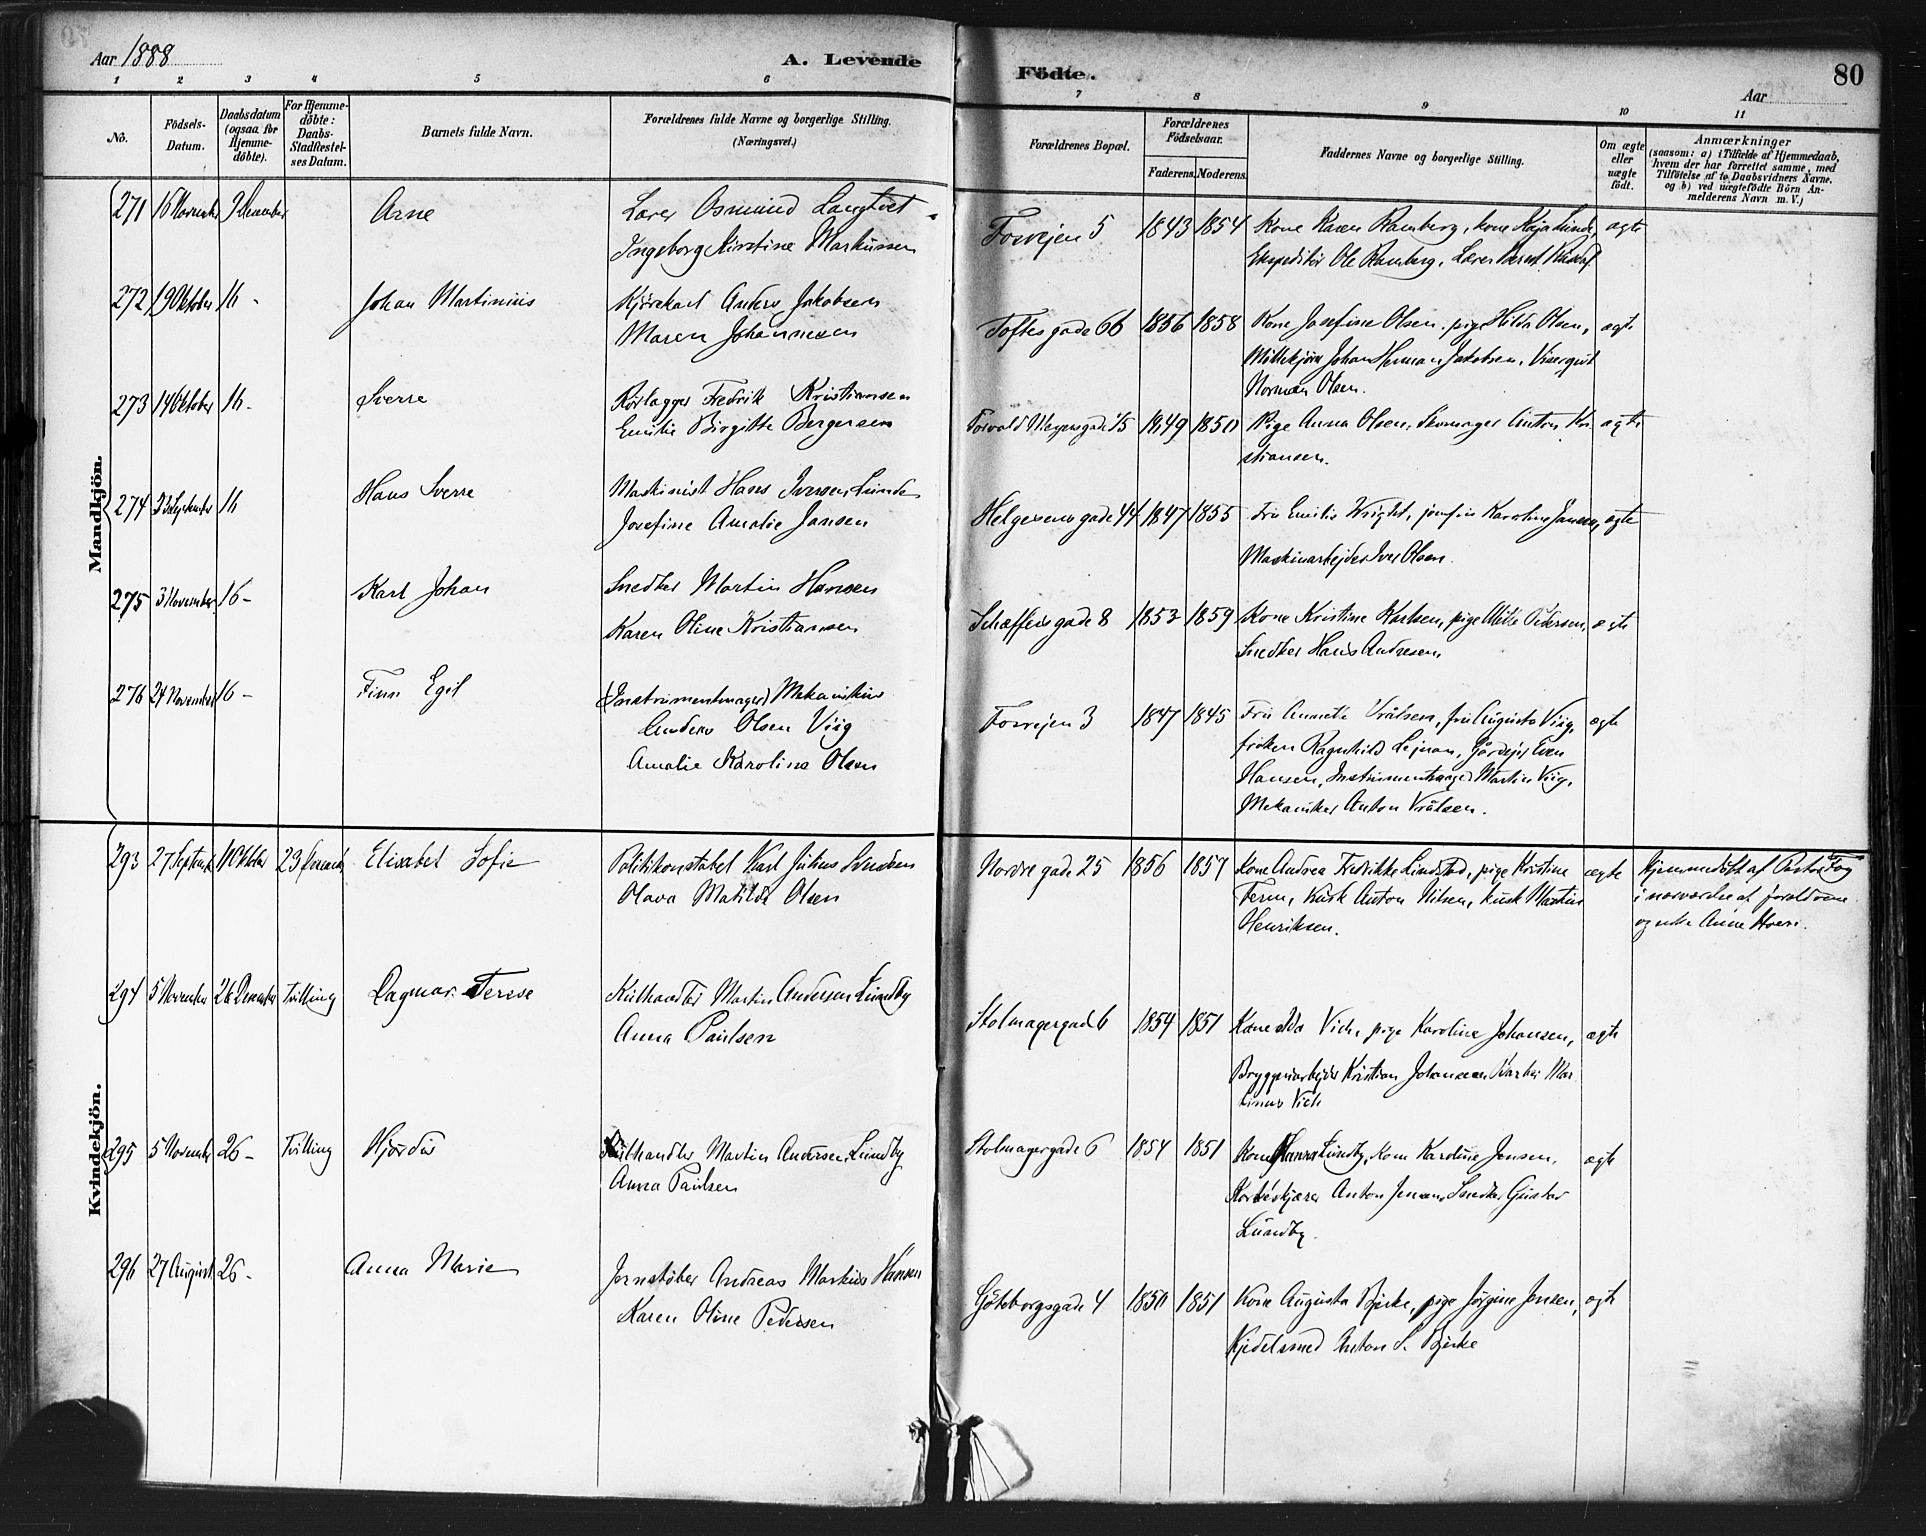 Aar 1888
A. Levende
Födte.
80
Aar
1 2 3 4 5 6 7 8 9 10 11
No.
Födsels-Datum.
Daabsdatum (ogsaa for Hjemme-döbte).
For Hjemme-döbte: Daabs-Stadfestel-ses Datum.
Barnets fulde Navn.
Forældrenes fulde Navne og borgerlige Stilling. (Næringsvei.)
Forældrenes Bopæl.
Forældrenes Födselsaar.
Faderens. Moderens.
Faddernes Navne og borgerlige Stilling.
Om ægte eller uægte födt.
Anmærkninger
(saasom: a) i Tilfælde af Hjemmedaab, hvem der har forrettet samme, med Tilföielse af to Daabsvidners Navne. og b) ved uægtefödte Börn An-melderens Navn m. V.)
Mandkjön.
271 16 November 9 December Arne Lærer Osmund Langtvet
Ingeborg Kirstine Markussen
Fosvejen 5 1843 1854 Kone Karen Ramberg, kone Kaja Lunde, ægte
Ekspeditör Ole Ramberg, Lærer
272 19 Oktober 16 - Johan Martinius Kjörekarl Anders Jakobsen
Maren Johannesen
Toftesgade 66 1856 1858 Kone Josefine Olsen, pige Hilda Olsen, ægte
Johan Herman Jakobsen, Visergut
Norman Olsen.
273 14 Oktober 16 - Sverre Rörlægger Fredrik Kristiansen
Emilie Birgitte Bergersen
Torvald Meyersgade 75 1849 1850 Pige Anna Olsen, Skomager Anton Kri ægte
stiansen.
274 23 September 16 Hans Sverre Maskinist Hans Iversen Lunde
Josefine Amalie Jansen
Helgesensgade 44 1847 1855 Fru Emilie Wright, jomfru Karoline Jansen, ægte
Maskinarbejder Iver Olsen.
275 3 November 16 - Karl Johan Snedker Martin Hansen
Karen Oline Kristiansen
Schæffersgade 8 1853 1859 Kone Kristine Karlsen, pige Mille Pedersen, ægte
Snedker Hans Andresen.
276 24 November 16 - Finn Egil (Instrumentmager) Mekanikus
Anders Olsen Viig
Amalie Karolina Olsen
Fosvejen 3 1847 1845 Fru Annette Vrålsen, fru Augusta Viig, ægte
fröken Ragnhild Lejnan, Gårdejer Even
Hansen, Instrumentmager Martin Viig,
Mekaniker Anton Vrålsen.
Kvindekjön.
293 27 Septemb 11 Oktober 23 December Elisabet Sofie Politikonstabel Karl Julius Knudsen
Olava Matilde Olsen
Nordregade 25 1856 1857 Kone Andrea Fredrikke Lindstad, pige Kristine ægte Hjemmedöbt af Pastor Fog
Ferm, Kusk Anton Nilsen, kusk Martin i nærværelse af forældrene
Henriksen. og enke Anne Hoen.
294 5 November 26 December Tvilling Dagmar Terese Kulhandler Martin Andersen Lundby
Anna Paulsen
Stolmagergad 6 1854 1851 Kone Ida Vich, pige Karoline Johansen, ægte
Bryggeriarbejder Kristian Johansen Mar
tinus Vich
295 5 November 26 - Tvilling Hjördis Kulhandler Martin Andersen Lundby
Anna Paulsen
Stolmagergade 6 1854 1851 Kone Hanna Lundby, kone Karoline Jensen, ægte
Anton Jensen, Snedker Gustav
Lundby.
296 27 August 26 - Anna Marie Jernstöber Andreas Markus Hansen
Karen Oline Pedersen
Göteborgsgade 4 1850 1851 Kone Augusta Bjerke, pige Jörgine Jensen, ægte
Kjedelsmed Anton S. Bjerke